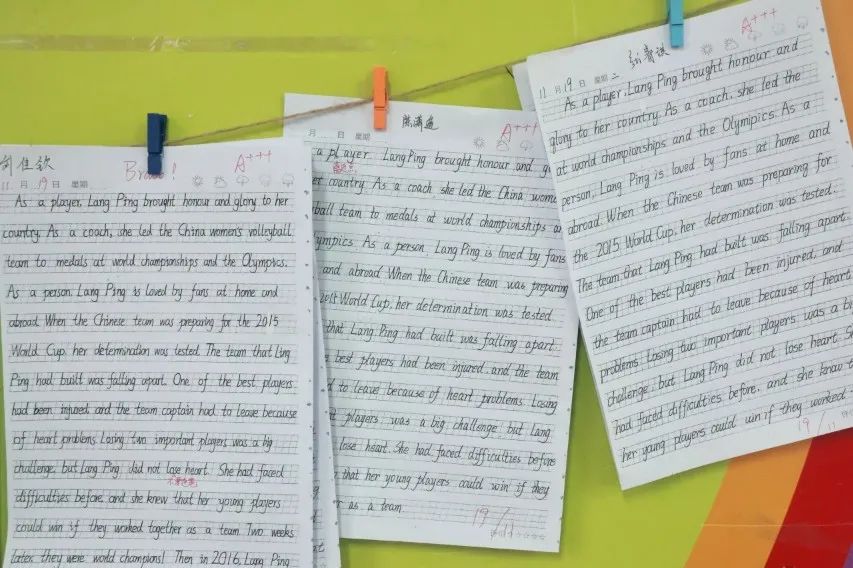 Bravo!
A+++
11月19日 星期
As a player, Lang Ping brought honour and glory to her
country. As a coach, she led the China women's volleyball
team to medals at world championships and the Olympics.
As a person, Lang Ping is loved by fans at home and
abroad. When the Chinese team was preparing for the 2015
World Cup, her determination was tested. The team that Ling
Ping had built was falling apart. One of the best players
had been injured, and the team captain had to leave because
of heart problems. Losing two important players was a big
challenge, but Lang Ping did not lose heart. She had faced
difficulties before, and she knew that her young players
could win if they worked together as a team. Two weeks
later, they were world champions! Then in 2016, Lang Ping
月 日 星期
A+++
a player, Lang Ping brought honour and
country. As a coach, she led the China
ball team to medals at world championships
ympics. As a person, Lang Ping is loved by fans
and abroad. When the Chinese team was preparing
World Cup, her determination was tested.
that Lang Ping had built was falling apart.
best players had been injured, and the team
to leave because of heart problems. Losing
players was a big challenge, but Lang
lose heart. She had faced difficulties before
that her young players could win if they
as a team.
19/11
A+++
11月19日 星期二
As a player, Lang Ping brought honour and
glory to her country. As a coach, she led the
at world championships and the Olympics. As a
person, Lang Ping is loved by fans at home and
abroad. When the Chinese team was preparing for
the 2015 World Cup, her determination was tested.
The team that Lang Ping had built was falling apart.
One of the best players had been injured, and
the team captain had to leave because of heart
problems. Losing two important players was a
challenge, but Lang Ping did not lose heart.
had faced difficulties before, and she knew
her young players could win if they worked
19